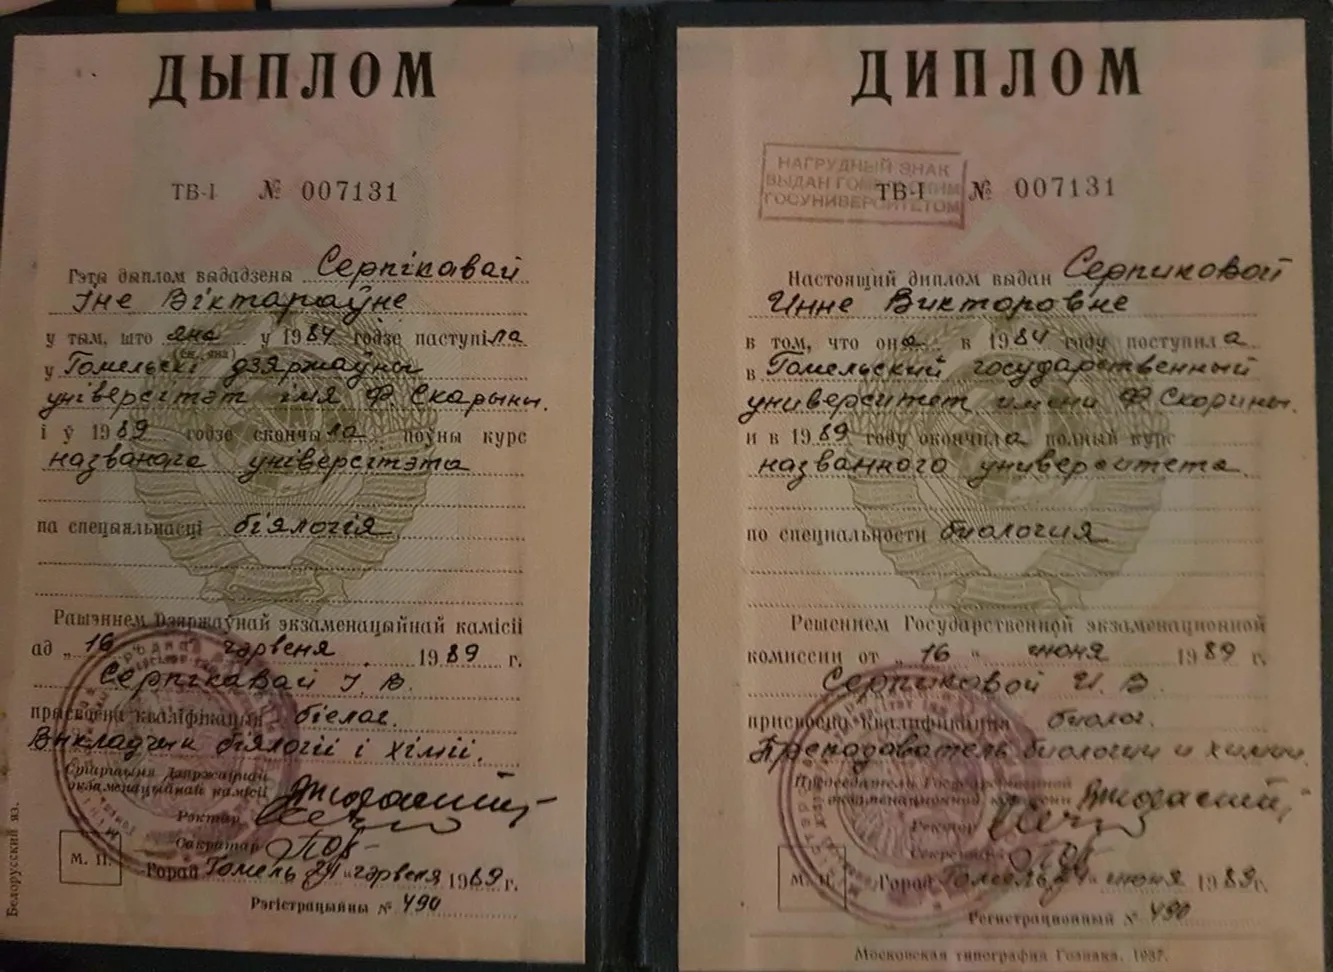 ДЫПЛОМ
ТВ-I № 007131
Гэты дыплом выдадзены Серпікавай
Іне Віктараўне
у тым, што яна у 1984 годзе паступіла
(ён, яна)
у Гомельскі дзяржаўны
універсітэт імя Ф Скарыны.
і ў 1989 годзе скончыла поўны курс
названага універсітэта
па спецыяльнасці біялогія
Рашэннем Дзяржаўнай экзаменацыйнай камісіі
ад „16 чэрвеня 1989 г.
Серпікавай І. В.
прысвоена кваліфікацыя біёлаг.
Выкладчык біялогіі і хіміі.
Старшыня Дзяржаўнай
экзаменацыйнай камісіі
Рэктар
Сакратар
М. П.
Горад Гомель 24 "чэрвеня 1989 г.
Рэгістрацыйны № 490
Белорусский яз.
ДИПЛОМ
НАГРУДНЫЙ ЗНАК
ВЫДАН ГОМЕЛЬСКИМ
ГОСУНИВЕРСИТЕТОМ
ТВ-I № 007131
Настоящий диплом выдан Серпиковой
Инне Викторовне
в том, что она в 1984 году поступила
в Гомельский государственный
университет имени Ф Скорины.
и в 1989 году окончила полный курс
названного университета
по специальности биология
Решением Государственной экзаменационной
комиссии от „16 " июня 1989 г.
Серпиковой И. В.
присвоена квалификация биолог.
Преподаватель биологии и химии.
Председатель Государственной
экзаменационной комиссии
Ректор
Секретарь
М. П.
Город Гомель 24 " июня 1989 г.
Регистрационный № 490
Московская типография Гознака. 1987.